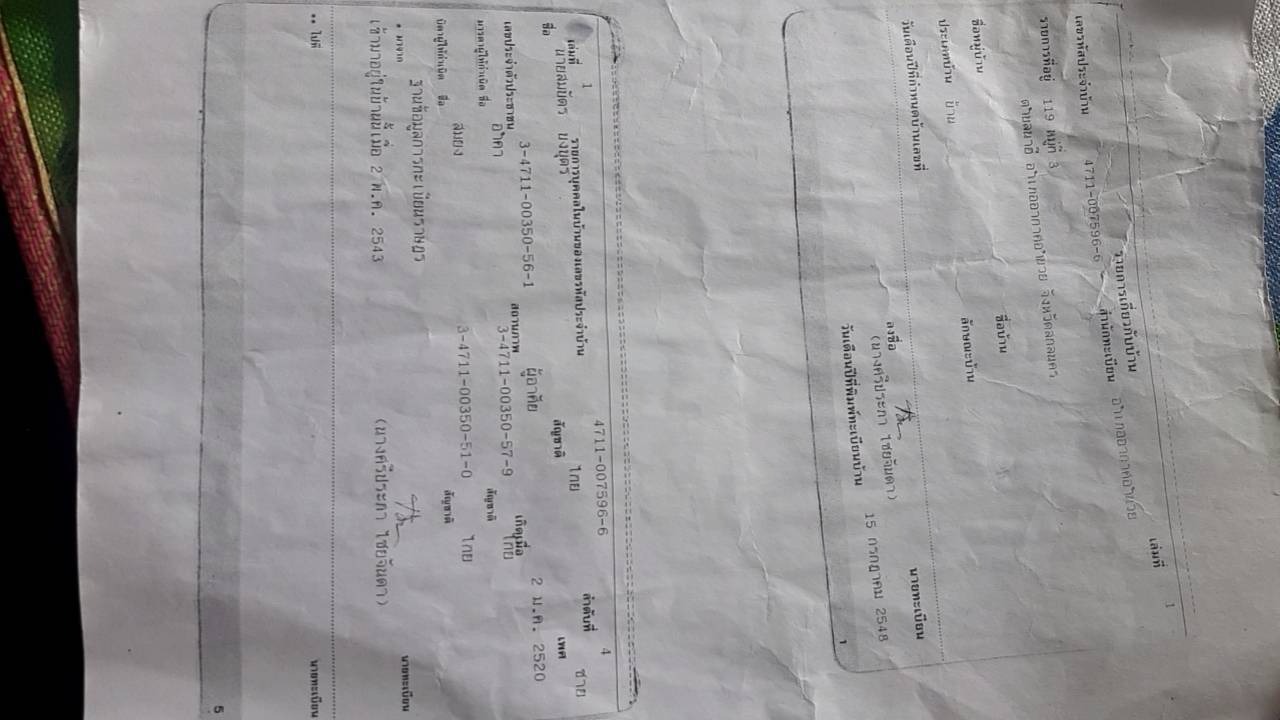 รายการเกี่ยวกับบ้าน เล่มที่ 1
เลขรหัสประจำบ้าน 4711-007596-6 สำนักทะเบียน อำเภออากาศอำนวย
รายการที่อยู่ 119 หมู่ที่ 3
ตำบลวาปี อำเภออากาศอำนวย จังหวัดสกลนคร
ชื่อหมู่บ้าน ชื่อบ้าน
ประเภทบ้าน บ้าน ลักษณะบ้าน
วันเดือนปีที่กำหนดบ้านเลขที่
ลงชื่อ นายทะเบียน
(นางศรีประภา ไชยจินดา)
วันเดือนปีที่พิมพ์ทะเบียนบ้าน 15 กรกฎาคม 2548
1
เล่มที่ 1 รายการบุคคลในบ้านของเลขรหัสประจำบ้าน 4711-007596-6 ลำดับที่ 4
ชื่อ นายสมบัตร ยงบุตร สัญชาติ ไทย เพศ ชาย
เลขประจำตัวประชาชน 3-4711-00350-56-1 สถานภาพ ผู้อาศัย เกิดเมื่อ 2 ม.ค. 2520
มารดาผู้ให้กำเนิด ชื่อ อำคา 3-4711-00350-57-9 สัญชาติ ไทย
บิดาผู้ให้กำเนิด ชื่อ สมยง 3-4711-00350-51-0 สัญชาติ ไทย
* มาจาก ฐานข้อมูลการทะเบียนราษฎร
เข้ามาอยู่ในบ้านนี้เมื่อ 2 พ.ค. 2543 (นางศรีประภา ไชยจินดา) นายทะเบียน
** ไปที่
นายทะเบียน
5